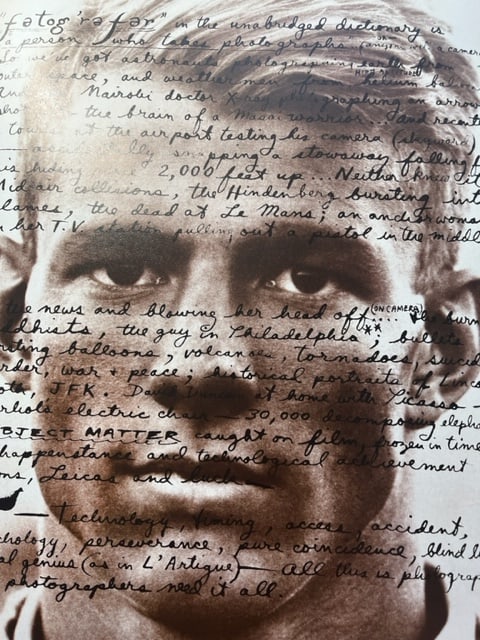 "fətog'rəfər" in the unabridged dictionary is
a person who takes photographs (anyone with a camera
So we've got astronauts photographing earth from
outer space, and weathermen from helium
HIGH ALTITUDE
Nairobi doctor X-ray photographing an arrow
the brain of a Masai warrior... and recent
tourist at the airport testing his camera (skyward)
accidentally snapping a stowaway falling f
his hiding 2,000 feet up... Neither knew it
Midair collisions, the Hindenberg bursting int
lames, the dead at Le Mans; an anchorwoma
her T.V. station pulling out a pistol in the middle
the news and blowing her head off.... the burn
(ON CAMERA)
ddhists, the guy in Philadelphia**, bullets
rsting balloons, volcanoes, tornadoes, suicid
rder, war + peace; historical portraits of Linco
oth, JFK. David Duncan at home with Picasso —
rhol's electric chair — 30,000 decomposing eleph
BJECT MATTER caught on film, frozen in time
happenstance and technological achievement
ons, Leicas and luck
— Technology, timing, access, accident,
chology, perseverance, pure coincidence, blind l
al genius (as in L'Artigue) — All this is photograp
photographers need it all.